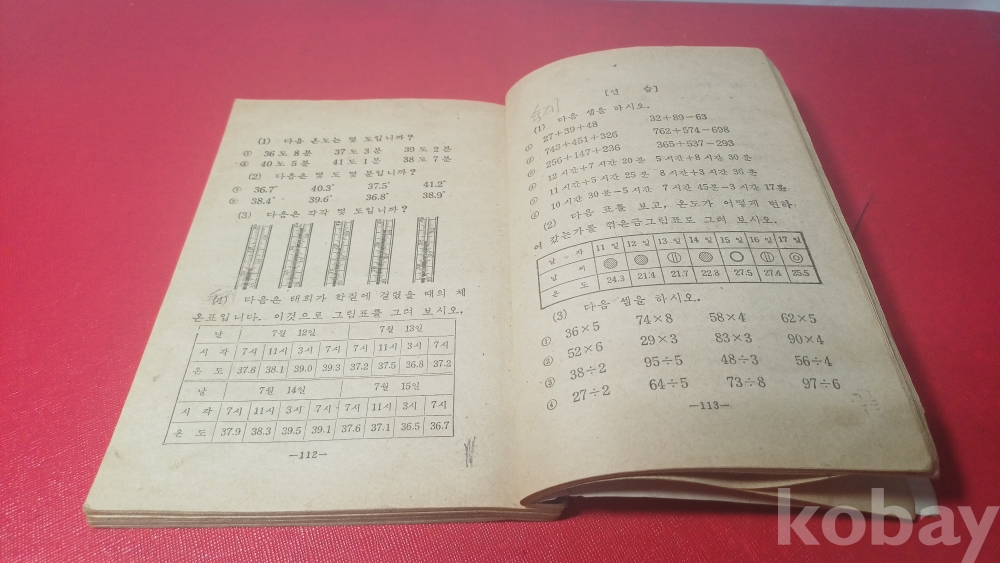 (1) 다음 온도는 몇 도입니까?
① 36 도 8 분 37 도 3 분 39 도 2 분
② 40 도 5 분 41 도 1 분 38 도 7 분
(2) 다음은 몇 도 몇 분입니까?
① 36.7° 40.3° 37.5° 41.2°
② 38.4° 39.6° 36.8° 38.9°
(3) 다음은 각각 몇 도입니까?
(4) 다음은 태희가 학질에 걸렸을 때의 체
온표입니다. 이것으로 그림표를 그려 보시오.
날 7월 12일 7월 13일
시 각 7시 11시 3시 7시 7시 11시 3시 7시
온 도 37.8 38.1 39.0 39.3 37.2 37.5 36.8 37.2
날 7월 14일 7월 15일
시 각 7시 11시 3시 7시 7시 11시 3시 7시
온 도 37.9 38.3 39.5 39.1 37.6 37.1 36.5 36.7
—112—
[연 습]
(1) 다음 셈을 하시오.
27+39+48 32+89−63
743+451+326 762+574−698
256+147+236 365+537−293
12 시간+7 시간 20 분 5 시간+8 시간 30 분
11 시간+5 시간 25 분 8 시간+3 시간 36 분
10 시간 30 분−5 시간 7 시간 45분−3 시간 17분
(2) 다음 표를 보고, 온도가 어떻게 변하
여 갔는가를 꺾은금그림표로 그려 보시오.
날 자 11 일 12 일 13 일 14 일 15 일 16 일 17 일
날 씨
온 도 24.3 21.4 21.7 22.8 27.5 27.4 25.5
(3) 다음 셈을 하시오.
① 36×5 74×8 58×4 62×5
② 52×6 29×3 83×3 90×4
③ 38÷2 95÷5 48÷3 56÷4
④ 27÷2 64÷5 73÷8 97÷6
—113—
kobay